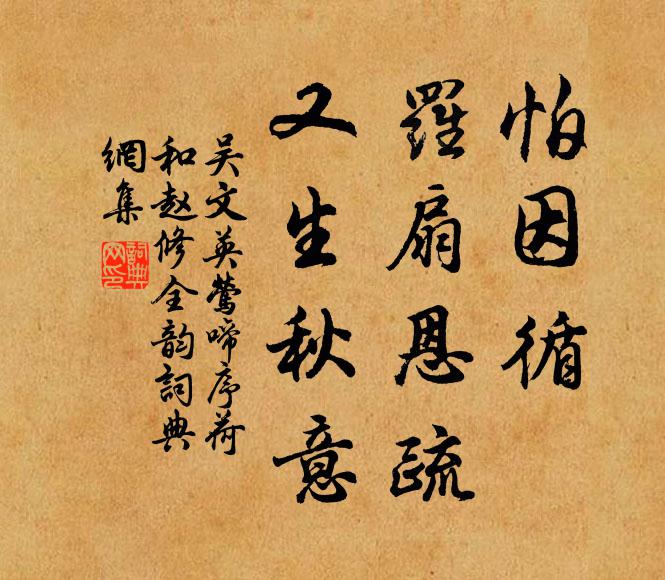 怕因循
羅扇恩疏
又生秋意
吴文英鶯啼序荷
和赵修全韵詞典
網集
詞典
网印